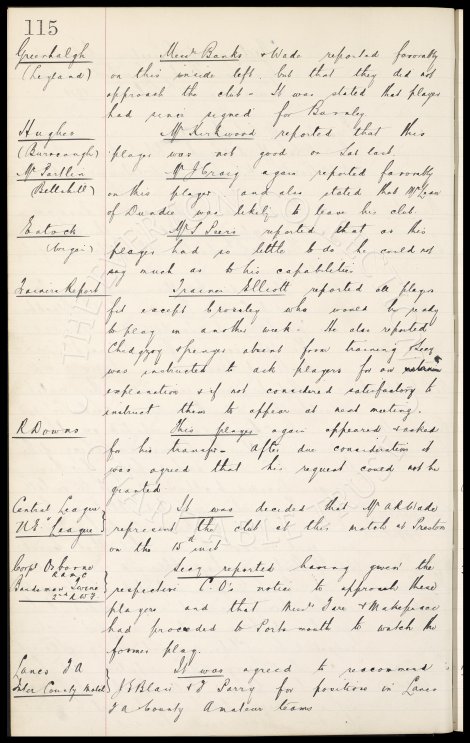 115
Greenhalgh Messrs Banks & Wade reported favorably
(Leyland) on this inside left. but that they did not
approach the club. It was stated that player
had since signed for Burnley
Hughes Mr Kirkwood reported that this
(Burscough) player was not good on Sat last
Mc Partlin Mr J Craig again reported favorably
(Bellshill) on this player and also stated that McLean
of Dundee was likely to leave his club.
Eatock Mr S Peers reported that as his
player had so little to do he could not
say much as to his capabilities
Trainers Report Trainer Elliott reported all players
fit except Crossley who would be ready
to play in another week. He also reported
Chedgzoy & absent from training Secy
was instructed to ask players for an
explanation & if not considered satisfactory to
instruct them to appear at next meeting.
R Downs This player again appeared & asked
for his transfer After due consideration it
was agreed that his request could not be
granted
Central League It was decided that Mr A R Wade
N.E. League represent the club at this match at Preston
on the 15th inst
Corpl Osborne Secy reported having given the
R A M C
Bandsman respective C.O's notice to approach these
2nd R W F
players and that Messrs Fare & Makepeace
had proceeded to Portsmouth to watch the
former play.
Lancs F A It was agreed to recommend
Inter County Match J E Blair & F Parry for positions in Lancs
F A County Amateur teams